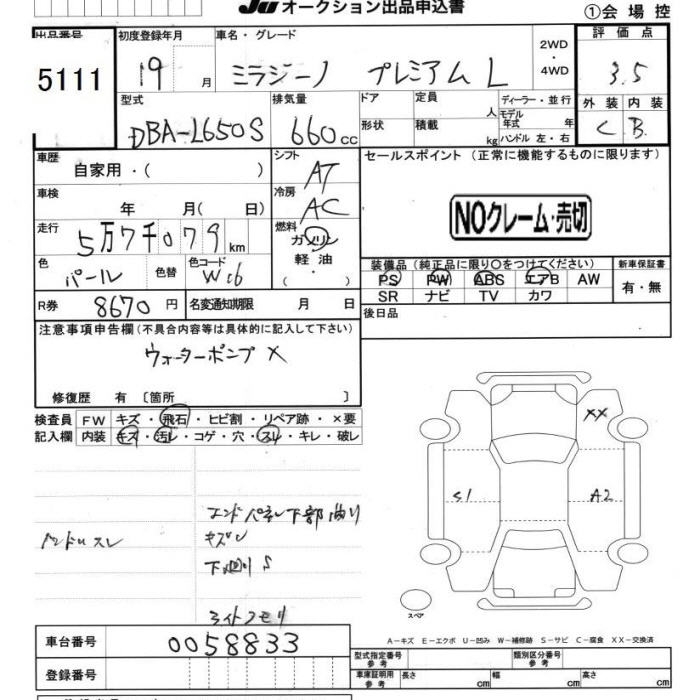 JU オークション出品申込書
①会 場 控
出品番号 5111
初度登録年月 19 月
車名・グレード ミラジーノ プレミアム L
2WD・4WD
評価点 3.5
外装 C 内装 B
型式 DBA-L650S
排気量 660cc
ドア 定員 人
形状 積載 kg
ディーラー・並行
モデル年式 年
ハンドル 左・右
車歴 自家用・( )
シフト AT
セールスポイント (正常に機能するものに限ります)
車検 年 月( 日)
冷房 AC
NOクレーム・売切
走行 5万7千079km
燃料 ガソリン 軽油・( )
色 パール 色替
色コード W16
装備品(純正品に限り○をつけてください) 新車保証書
PS PW ABS エアB AW 有・無
SR ナビ TV カワ
R券 8670円 名変通知期限 月 日
後日品
注意事項申告欄(不具合内容等は具体的に記入して下さい)
ウォーターポンプ ×
修復歴 有 〔箇所 〕
検査員記入欄
FW キズ・飛石・ヒビ割・リペア跡・×要
内装 キズ・汚レ・コゲ・穴・スレ・キレ・破レ
XX
S1 A2
エンドパネル下部曲り
キズ
下廻りS
ライトクモリ
スペア
A-キズ E-エクボ U-凹み W-補修跡 S-サビ C-腐食 XX-交換済
車台番号 0058833
型式指定番号 参考 類別区分番号 参考
登録番号
車庫証明用 参考 長さ cm 幅 cm 高さ cm